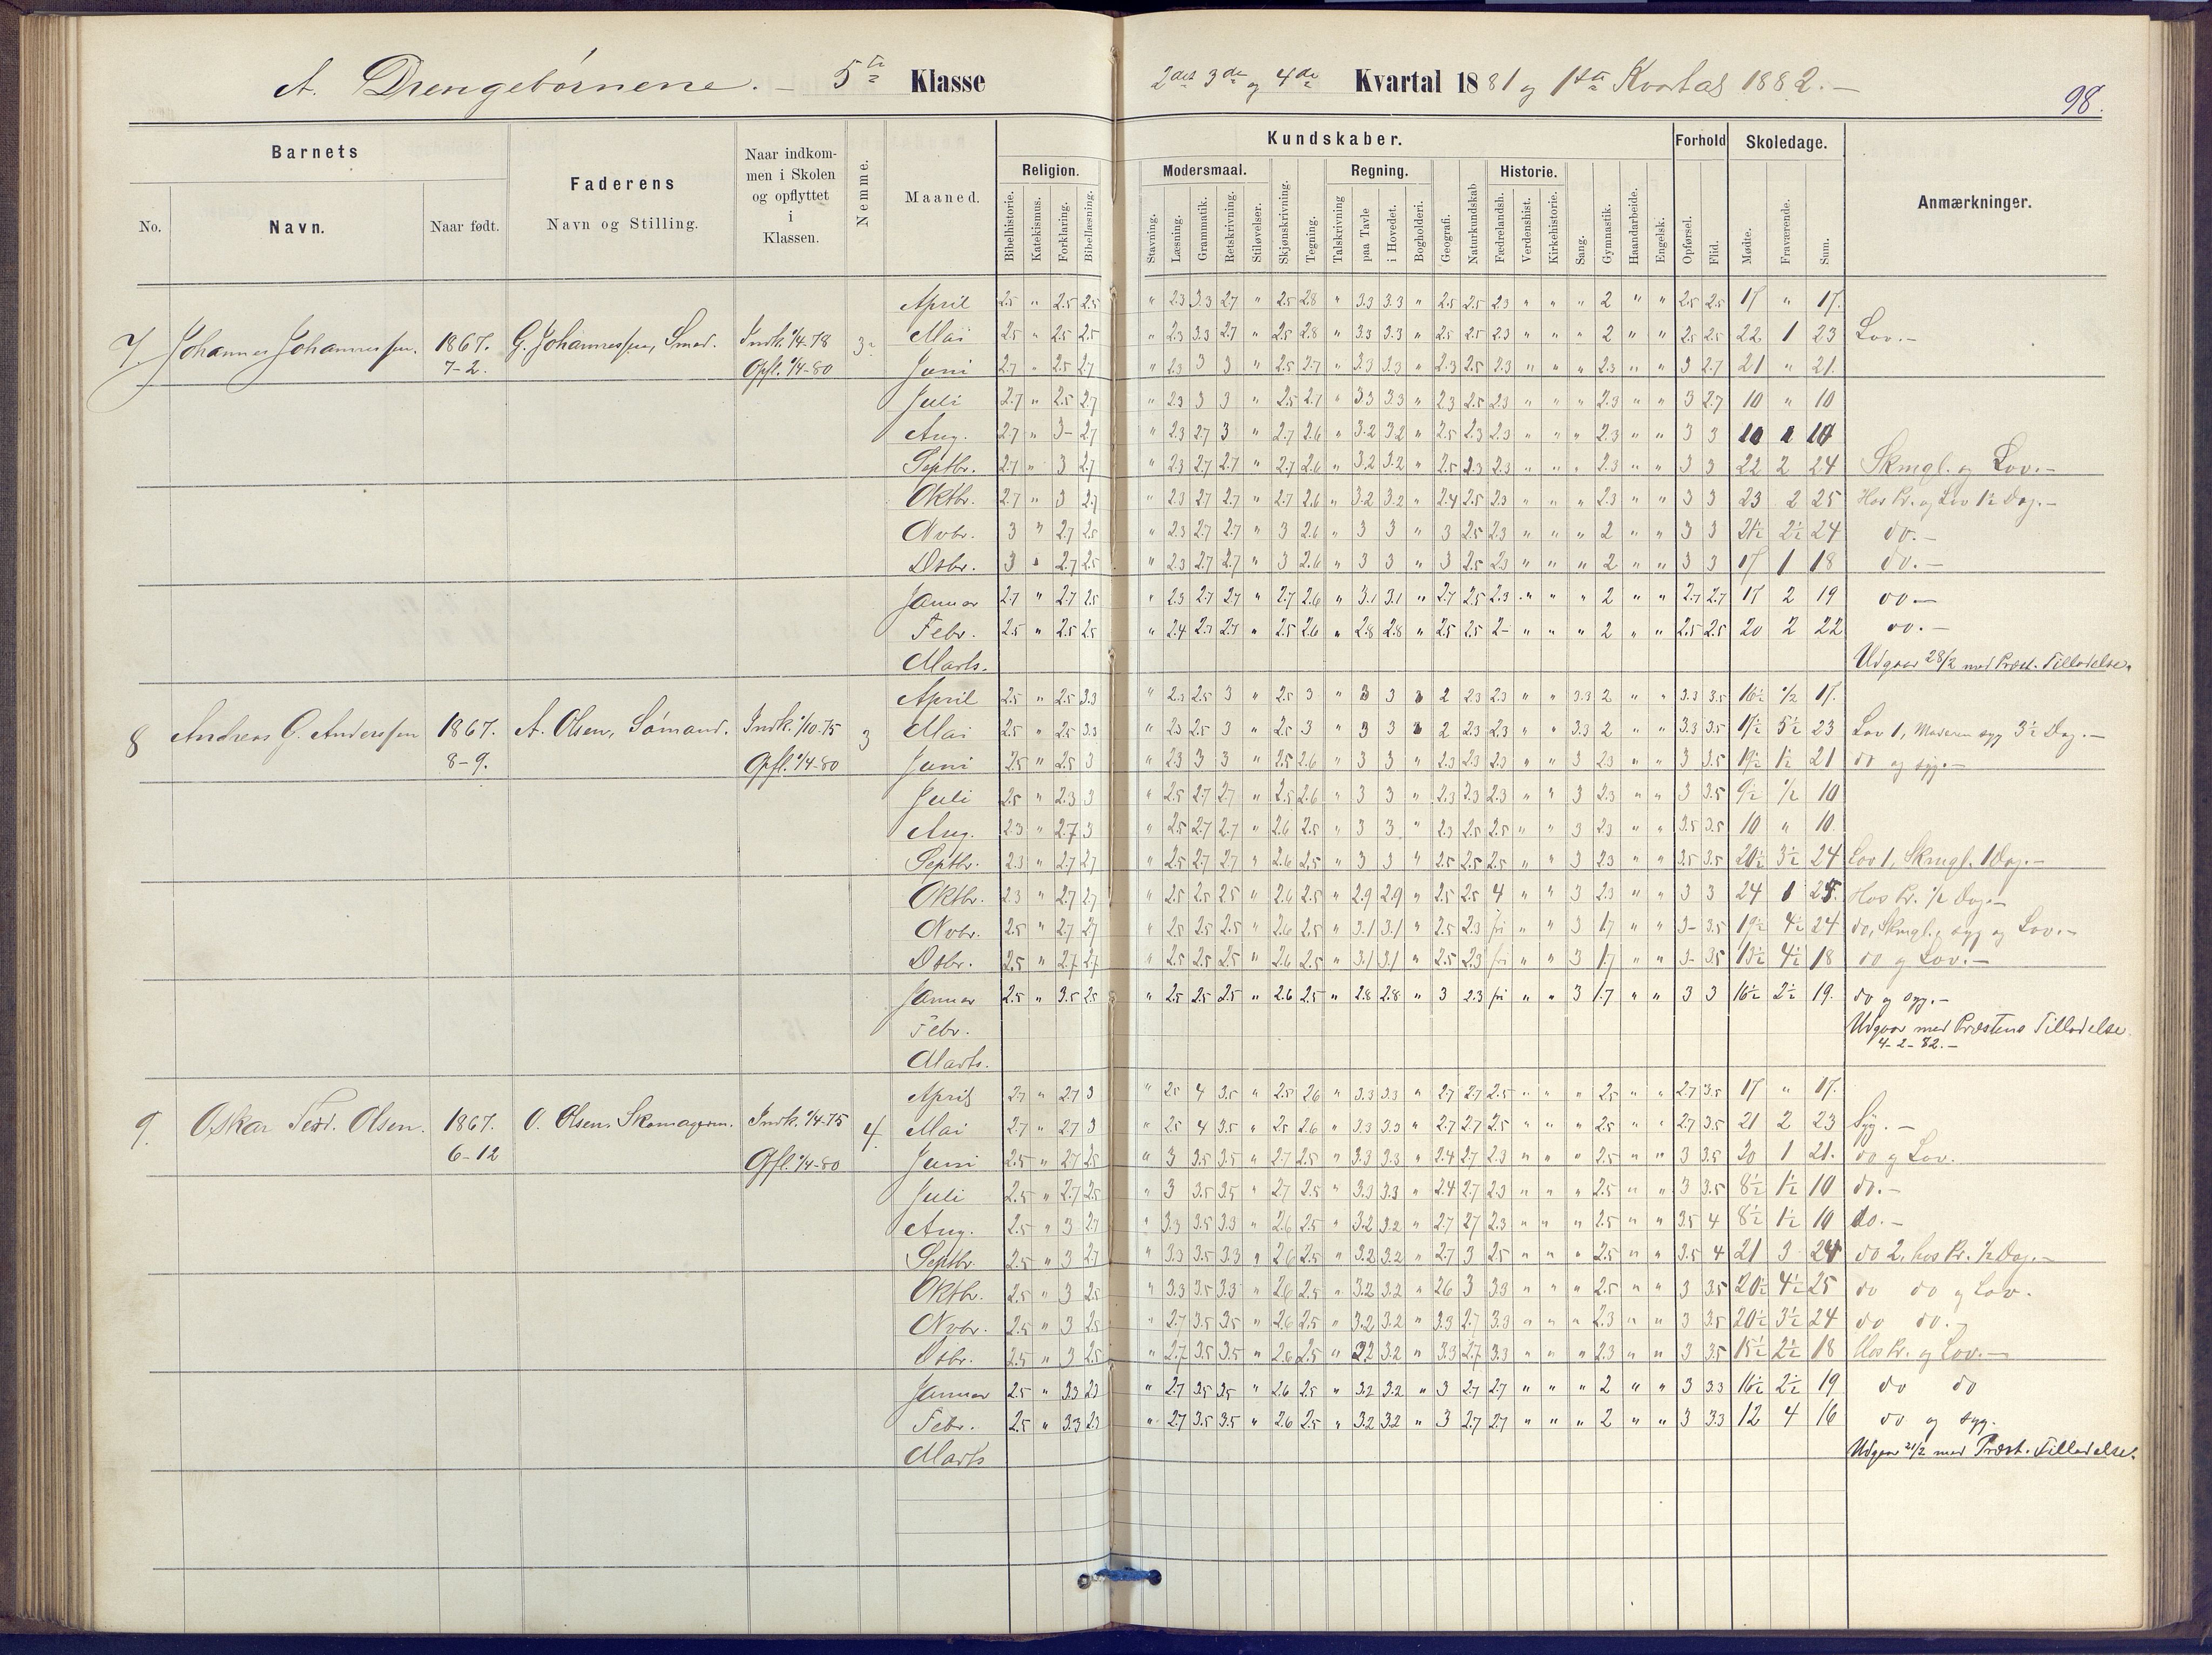 A. Drengebørnene. – 5te Klasse
2det 3de og 4de Kvartal 1881 og 1ste Kvartal 1882. –
98.
Barnets
No.
Navn.
Naar født.
Faderens
Navn og Stilling.
Naar indkom-
men i Skolen
og opflyttet
i
Klassen.
Nemme.
Maaned.
Kundskaber.
Religion.
Bibelhistorie.
Katekismus.
Forklaring.
Bibellæsning.
Modersmaal.
Stavning.
Læsning.
Grammatik.
Retskrivning.
Stiløvelser.
Skjønskrivning.
Tegning.
Regning.
Talskrivning
paa Tavle
i Hovedet.
Bogholderi.
Geografi.
Naturkundskab
Historie.
Fædrelandsh.
Verdenshist.
Kirkehistorie.
Sang.
Gymnastik.
Haandarbeide.
Engelsk.
Forhold
Opførsel.
Flid.
Skoledage.
Mødte.
Fraværende.
Sum.
Anmærkninger.
April 2.5 " 2.5 2.5 " 2.3 3.3 2.7 " 2.5 2.8 " 3.3 3.3 " 2.5 2.5 2.3 " " " 2 " " 2.5 2.5 17 " 17.
7. Johannes Johannessen. 1867. G. Johannessen, Smed. Indk. 1/4-78 3
Mai 2.5 " 2.5 2.5 " 2.3 3.3 2.7 " 2.5 2.8 " 3.3 3.3 " 2.5 2.5 2.3 " " " 2 " " 2.5 2.5 22 1 23 Lov. –
7–2. Opfl. 1/4-80
Juni 2.7 " 2.5 2.7 " 2.3 3 3 " 2.5 2.7 " 3.3 3.3 " 2.3 2.5 2.3 " " " 2.3 " " 3 2.7 21 " 21.
Juli 2.7 " 2.5 2.7 " 2.3 3 3 " 2.5 2.7 " 3.3 3.3 " 2.3 2.5 2.3 " " " 2.3 " " 3 2.7 10 " 10
Aug. 2.7 " 3– 2.7 " 2.3 2.7 3 " 2.7 2.6 " 3.2 3.2 " 2.5 2.3 2.3 " " " 2.3 " " 3 3
Septbr. 2.7 " 3 2.7 " 2.3 2.7 2.7 " 2.7 2.6 " 3.2 3.2 " 2.5 2.3 2.3 " " " 2.3 " " 3 3 22 2 24 Skmgl. og Lov. –
Oktbr. 2.7 " 3 2.7 " 2.3 2.7 2.7 " 2.7 2.6 " 3.2 3.2 " 2.4 2.5 2.3 " " " 2.3 " " 3 3 23 2 25 Hos Pr. og Lov 1½ Dag. –
Novbr. 3 " 2.7 2.5 " 2.3 2.7 2.7 " 3 2.6 " 3 3 " 3 2.5 2.3 " " " 2 " " 3 3 21½ 2½ 24 do. –
Dsbr. 3 " 2.7 2.5 " 2.3 2.7 2.7 " 3 2.6 " 3 3 " 3 2.5 2.3 " " " 2 " " 3 3 17 1 18 do. –
Januar 2.7 " 2.7 2.5 " 2.3 2.7 2.7 " 2.7 2.6 " 3.1 3.1 " 2.7 2.5 2.3 " " " 2 " " 2.7 2.7 17 2 19 do –
Febr. 2.5 " 2.5 2.5 " 2.4 2.7 2.7 " 2.5 2.6 " 2.8 2.8 " 2.5 2.5 2– " " " 2 " " 2.5 2.5 20 2 22 do. –
Marts. Udgaar 28/2 med Præst. Tilladelse.
April 2.5 " 2.5 3.3 " 2.3 2.5 3 " 2.5 3 " 3 3 2 2.3 2.3 " " 3.3 2 " " 3.3 3.5 16½ ½ 17.
8 Andreas G. Anderssen 1867. A. Olsen, Sømand. Indk. 1/10.75 3
Mai 2.5 " 2.5 3.3 " 2.3 2.5 3 " 2.5 3 " 3 3 2 2.3 2.3 " " 3.3 2 " " 3.3 3.5 17½ 5½ 23 Lov 1, Moderen syg 3½ Dag. –
8–9. Opfl. 1/4-80
Juni 2.5 " 2.5 3 " 2.3 3 3 " 2.5 2.6 " 3 3 " 2.3 2.3 2.3 " " 3 2.3 " " 3 3.5 19½ 1½ 21 do og syg. –
Juli 2.5 " 2.3 3 " 2.5 2.7 2.7 " 2.5 2.6 " 3 3 " 2.3 2.3 2.3 " " 3 2.3 " " 3 3.5 9½ ½ 10
Aug. 2.3 " 2.7 3 " 2.5 2.7 2.7 " 2.6 2.5 " 3 3 " 2.3 2.5 2.5 " " 3 2.3 " " 3.5 3.5 10 " 10.
Septbr. 2.3 " 2.7 2.7 " 2.5 2.7 2.7 " 2.6 2.5 " 3 3 " 2.5 2.5 2.5 " " 3 2.3 " " 3.5 3.5 20½ 3½ 24 Lov 1, Skmgl. 1 Dag. –
Oktbr. 2.3 " 2.7 2.7 " 2.5 2.5 2.5 " 2.6 2.5 " 2.9 2.9 " 2.5 2.5 4 " " 3 2.3 " " 3 3 24 1 25. Hos Pr. ½ Dag. –
Novbr. 2.5 " 2.7 2.7 " 2.5 2.5 2.5 " 2.6 2.5 " 3.1 3.1 " 2.5 2.3 fri " " 3 1.7 " " 3– 3.5 19½ 4½ 24 do, Skmgl., syg og Lov. –
Dsbr. 2.5 " 2.7 2.7 " 2.5 2.5 2.5 " 2.6 2.5 " 3.1 3.1 " 2.5 2.3 fri " " 3 1.7 " " 3– 3.5 13½ 4½ 18 do og Lov. –
Januar 2.5 " 3.5 2.5 " 2.5 2.5 2.5 " 2.6 2.5 " 2.8 2.8 " 3 2.3 fri " " 3 1.7 " " 3 3 16½ 2½ 19. do og syg. –
Febr. Udgaar med Præstens Tilladelse
4–2–82. –
Marts.
April 2.7 " 2.7 3 " 2.5 4 3.5 " 2.5 2.6 " 3.3 3.3 " 2.7 2.7 2.5 " " " 2.5 " " 2.7 3.5 17 " 17.
9. Oskar Ferd. Olsen. 1867. O. Olsen, Skomagerm. Indk. 1/4-75 4.
Mai 2.7 " 2.7 3 " 2.5 4 3.5 " 2.5 2.6 " 3.3 3.3 " 2.7 2.7 2.5 " " " 2.5 " " 2.7 3.5 21 2 23 Syg. –
6–12 Opfl. 1/4-80
Juni 2.5 " 2.7 2.5 " 3 3.5 3.5 " 2.7 2.5 " 3.3 3.3 " 2.4 2.7 2.3 " " " 2.5 " " 3 3.5 20 1 21. do og Lov.
Juli 2.5 " 2.7 2.5 " 3 3.5 3.5 " 2.7 2.5 " 3.3 3.3 " 2.4 2.7 2.3 " " " 2.5 " " 3 3.5 8½ 1½ 10 do. –
Aug. 2.5 " 3 2.7 " 3.3 3.5 3.3 " 2.6 2.5 " 3.2 3.2 " 2.7 2.7 2.3 " " " 2.5 " " 3.5 4 8½ 1½ 10 do. –
Septbr. 2.5 " 3 2.7 " 3.3 3.5 3.3 " 2.6 2.5 " 3.2 3.2 " 2.7 3 2.5 " " " 2.5 " " 3.5 4 21 3 24 do 2, hos Pr. ½ Dag. –
Oktbr. 2.5 " 3 2.5 " 3.3 3.5 3.3 " 2.6 2.5 " 3.2 3.2 " 2.6 3 3.3 " " " 2.5 " " 3 3.5 20½ 4½ 25 do do og Lov.
Novbr. 2.5 " 3 2.5 " 2.7 3.5 3.5 " 2.6 2.5 " 3.2 3.2 " 3.3 2.7 3.3 " " " 2.3 " " 3 3.5 20½ 3½ 24 do do. –
Dsbr. 2.5 " 3 2.5 " 2.7 3.5 3.5 " 2.6 2.5 " 3.2 3.2 " 3.3 2.7 3.3 " " " 2.3 " " 3 3.5 15½ 2½ 18 Hos Pr. og Lov. –
Januar 2.5 " 3.3 2.3 " 2.7 3.5 3.5 " 2.6 2.5 " 3.2 3.2 " 3 2.7 2.7 " " " 2 " " 3 3.3 16½ 2½ 19 do do
Febr. 2.5 " 3.3 2.3 " 2.7 3.5 3.5 " 2.6 2.5 " 3.2 3.2 " 3 2.7 2.7 " " " 2 " " 3 3.3 12 4 16 do og syg.
Marts Udgaar 21/2 med Præst. Tilladelse.